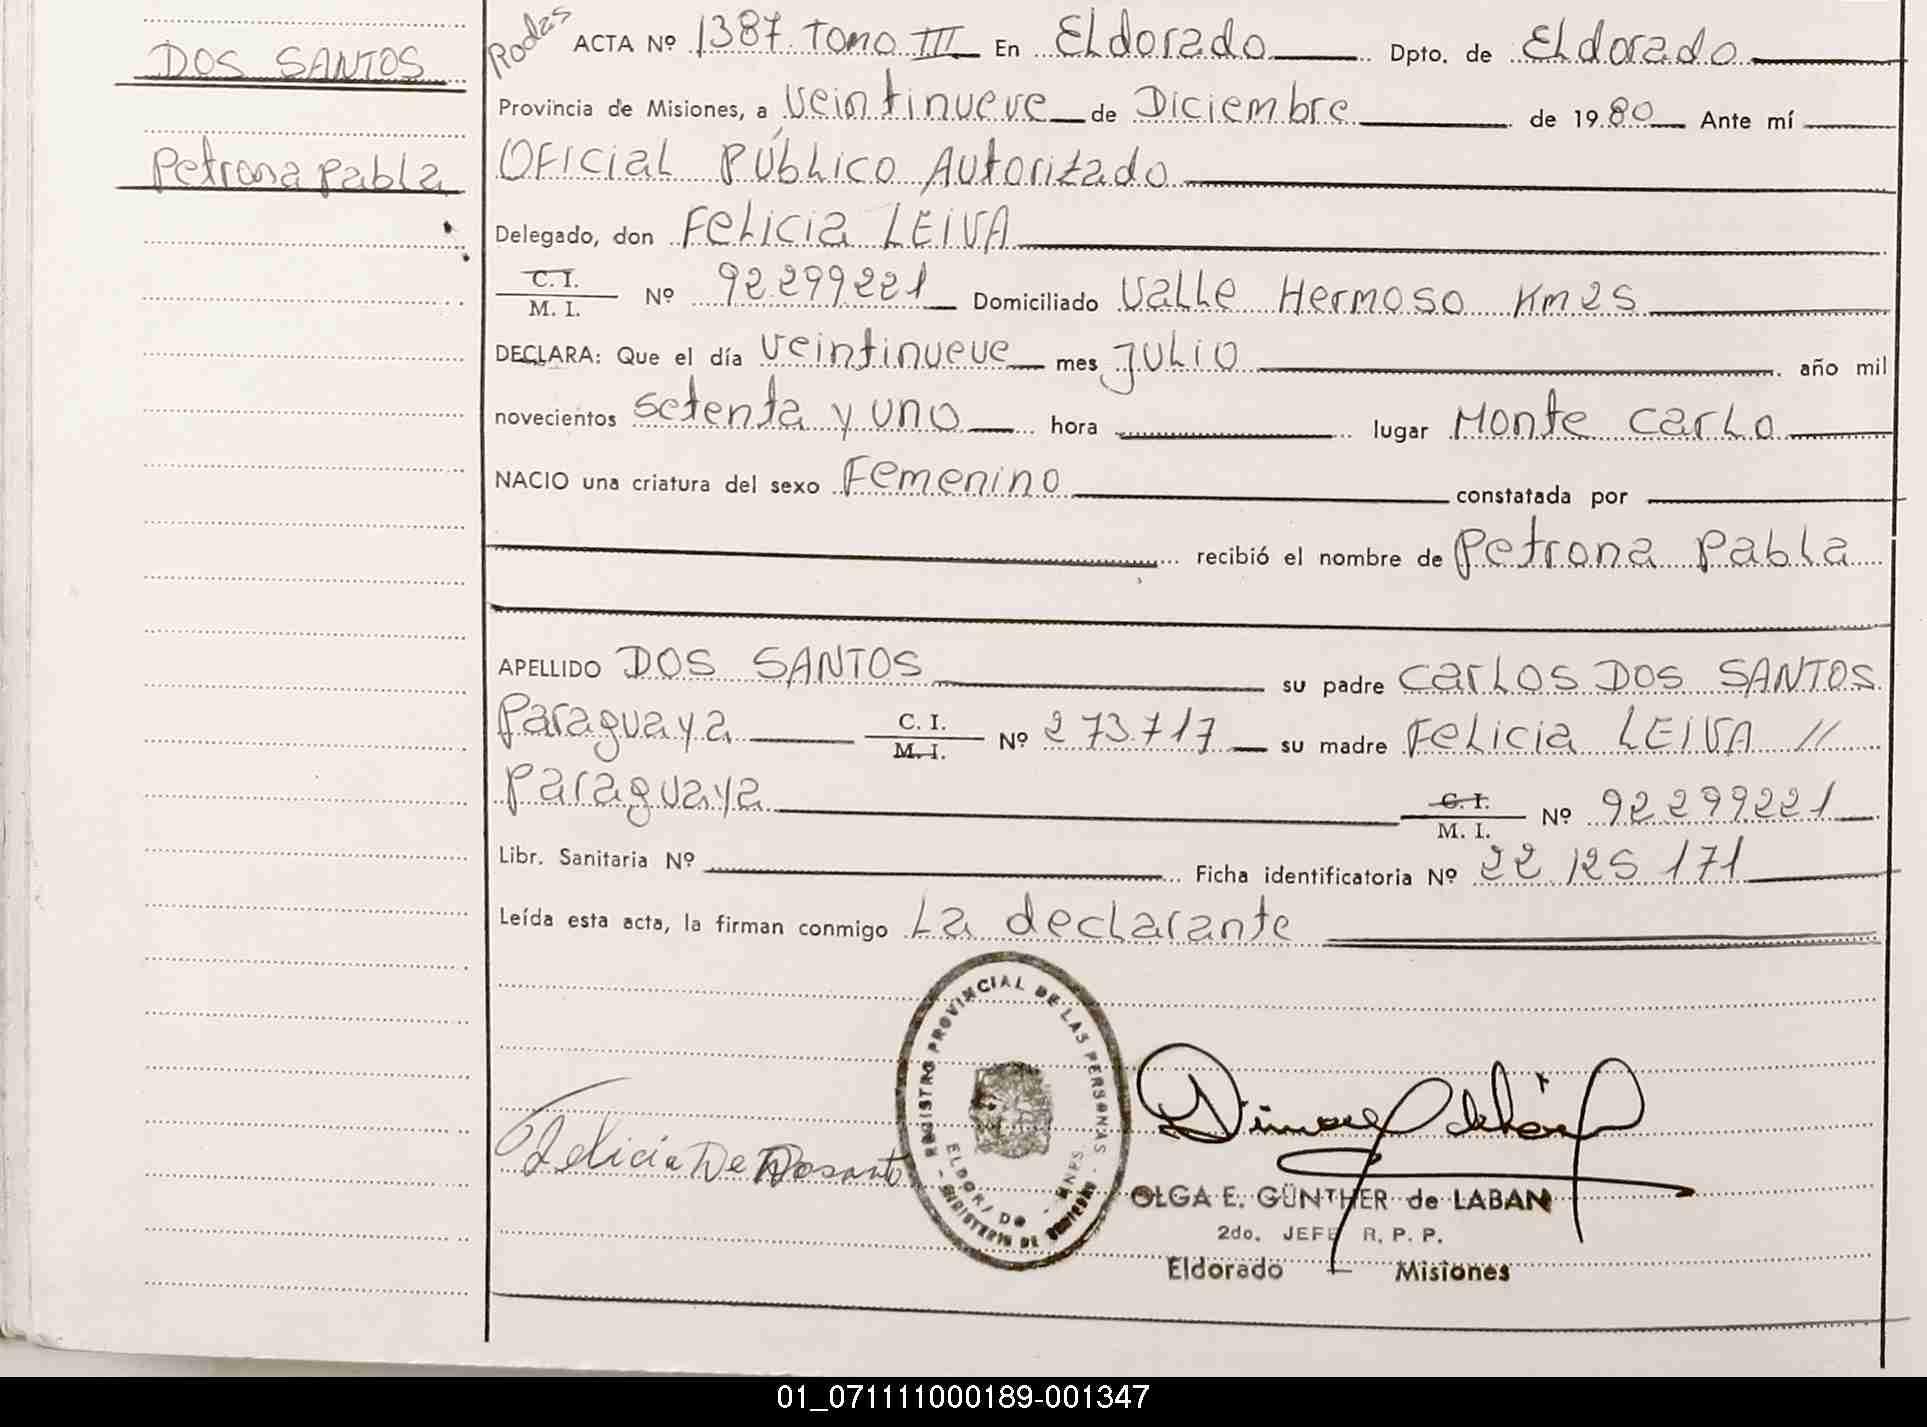 DOS SANTOS
Petrona Pabla
Rodas
ACTA Nº 1387 Tomo III En ELdorado Dpto. de ELdorado
Provincia de Misiones, a veintinueve de Diciembre de 1980 Ante mí
OFICIAL PÚBLICO Autorizado
Delegado, don FeLicia LEIVA
C. I.
M. I. Nº 92.299.221 Domiciliado VaLLe Hermoso Km 25
DECLARA: Que el día veintinueve mes JULIO año mil
novecientos setenta y uno hora lugar Monte CarLo
NACIO una criatura del sexo Femenino constatada por
recibió el nombre de Petrona Pabla
APELLIDO DOS SANTOS su padre CarLos DOS SANTOS
Paraguaya C. I. Nº 273.717 su madre FeLicia LEIVA //
M. I.
Paraguaya C. I. Nº 92 299221
M. I.
Libr. Sanitaria Nº Ficha identificatoria Nº 22.125 171
Leída esta acta, la firman conmigo La declarante
REGISTRO PROVINCIAL DE LAS PERSONAS
ELDORADO - MNES.
MINISTERIO DE GOBIERNO
Felicia De Dosanto
OLGA E. GÜNTHER de LABAN
2do. JEFE R. P. P.
Eldorado - Misiones
01_071111000189-001347